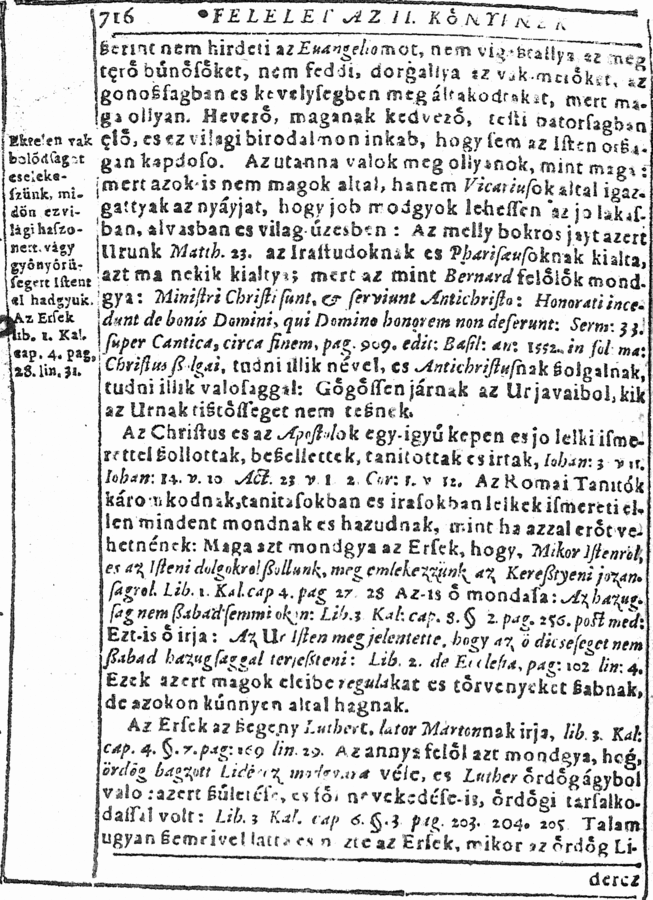 716 FELELET AZ II. KÖNYVNEK
ßerint nem hirdeti az Euangeliomot, nem az meg
térő bűnősőket, nem feddi, dorgallya az az
gonoßsagban es kevelysegben megáltakodtakat, mert ma-
ga ollyan. Heverő, maganak kedvező, testi batorsagban
élő, es ez vilagi birodalmon inkab, hogy sem az Isten
gan kapdoso. Azutanna valok meg ollyanok, mint maga:
mert azok-is nem magok altal, hanem Vicariusok altal igaz-
gattyak az nyáyjat, hogy job modgyok lehessen az jo lakas-
ban, alvasban es vilag-űzesben: Az melly bokros jayt azert
Urunk Matth. 23. az Irastudoknak es Phariseusoknak kialta,
azt ma nekik kialtya; mert az mint Bernard felőlők mond-
gya: Ministri Christi sunt, & serviunt Antichristo: Honorati ince-
dunt de bonis Domini, qui Domino honorem non deserunt: Serm: 33.
super Cantica, circa finem, pag. 909. edit: Basil: an: 1552. in fol ma:
Christus ßolgai, tudni illik névvel, es Antichristusnak ßolgalnak,
tudni illik valosaggal: Gőgőssen járnak az Ur javaibol, kik
az Urnak tißtősseget nem teßnek.
Az Christus es az Apostolok egy-igyű kepen es jo lelki isme-
rettel ßollottak, beßellettek, tanitottak es irtak, Iohan: 3 v 11.
Iohan: 14. v. 10 Act. 23 v 1 2. Cor: 1. v 12. Az Romai Tanitók
káromkodnak, tanitasokban es irasokban lelkek ismereti el-
len mindent mondnak es hazudnak, mint ha azzal erőt ve-
hetnének: Maga azt mondgya az Ersek, hogy, Mikor Istenről,
es az Isteni dolgokrol ßollunk, meg emlekezzünk az Kereßtyeni jozan-
sagrol. Lib. 1. Kal. cap 4. pag 27. 28 Az-is ő mondasa: Az hazug-
sag nem ßabad semmi okon: Lib. 3 Kal: cap. 8. § 2. pag. 256. post med:
Ezt-is ő irja: Az Ur Isten megjelentette, hogy az ő dicseseget nem
ßabad hazugsaggal terjeßteni: Lib. 2. de Ecclesia, pag: 102 lin: 4.
Ezek azert magok eleibe regulakat es tőrvenyeket ßabnak,
de azokon kűnnyen altal hagnak.
Az Ersek az ßegeny Luthert, lator Mártonnak irja, lib. 3. Kal:
cap. 4. §. 7. pag: 169 lin. 29. Az annya felől azt mondgya, hog,
ördög hagyott Liderez véle, es Luther őrdőgágybol
valo: azert ßűletése, es nevekedése-is, őrdőgi tarsalko-
dassal volt: Lib. 3 Kal. cap 6. §. 3 pag. 203. 204. 205 Talam
ugyan ßemeivel latta es az Ersek, mikor az őrdőg Li-
dercz
Ektelen vak
bolődsagot
eseleke-
szünk, mi-
dőn ez vi-
lági haszo-
nert. vagy
gyönyörű-
segert Istent
el hadgyuk.
Az Ersek
lib. 1. Kal.
cap. 4. pag,
28. lin. 31.